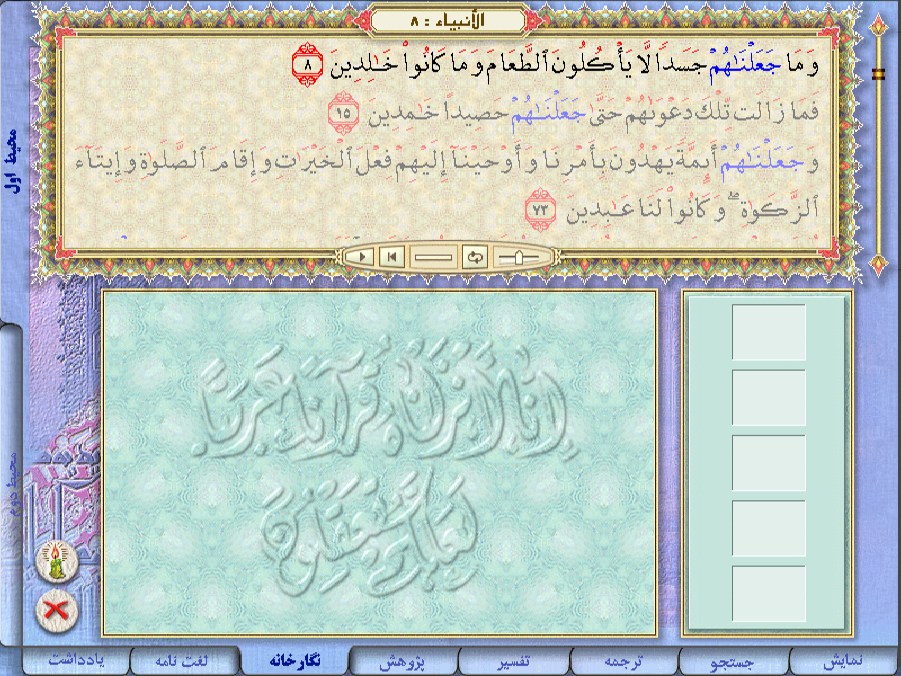 الأنبياء : ٨
وَمَا جَعَلْنَـٰهُمْ جَسَداً لَّا يَأْكُلُونَ ٱلطَّعَامَ وَمَا كَانُواْ خَـٰلِدِينَ ٨
فَمَا زَالَت تِّلْكَ دَعْوَىٰهُمْ حَتَّىٰ جَعَلْنَـٰهُمْ حَصِيداً خَـٰمِدِينَ ١٥
وَجَعَلْنَـٰهُمْ أَئِمَّةً يَهْدُونَ بِأَمْرِنَا وَأَوْحَيْنَآ إِلَيْهِمْ فِعْلَ ٱلْخَيْرَٰتِ وَإِقَامَ ٱلصَّلَوٰةِ وَإِيتَآءَ
ٱلزَّكَوٰةِ ۖ وَكَانُواْ لَنَا عَـٰبِدِينَ ٧٣
محیط اول
محیط دوم
إنا أنزلناه قرآنا عربيا
لعلكم تعقلون
نمایش
جستجو
ترجمه
تفسیر
پژوهش
نگارخانه
لغت نامه
یادداشت